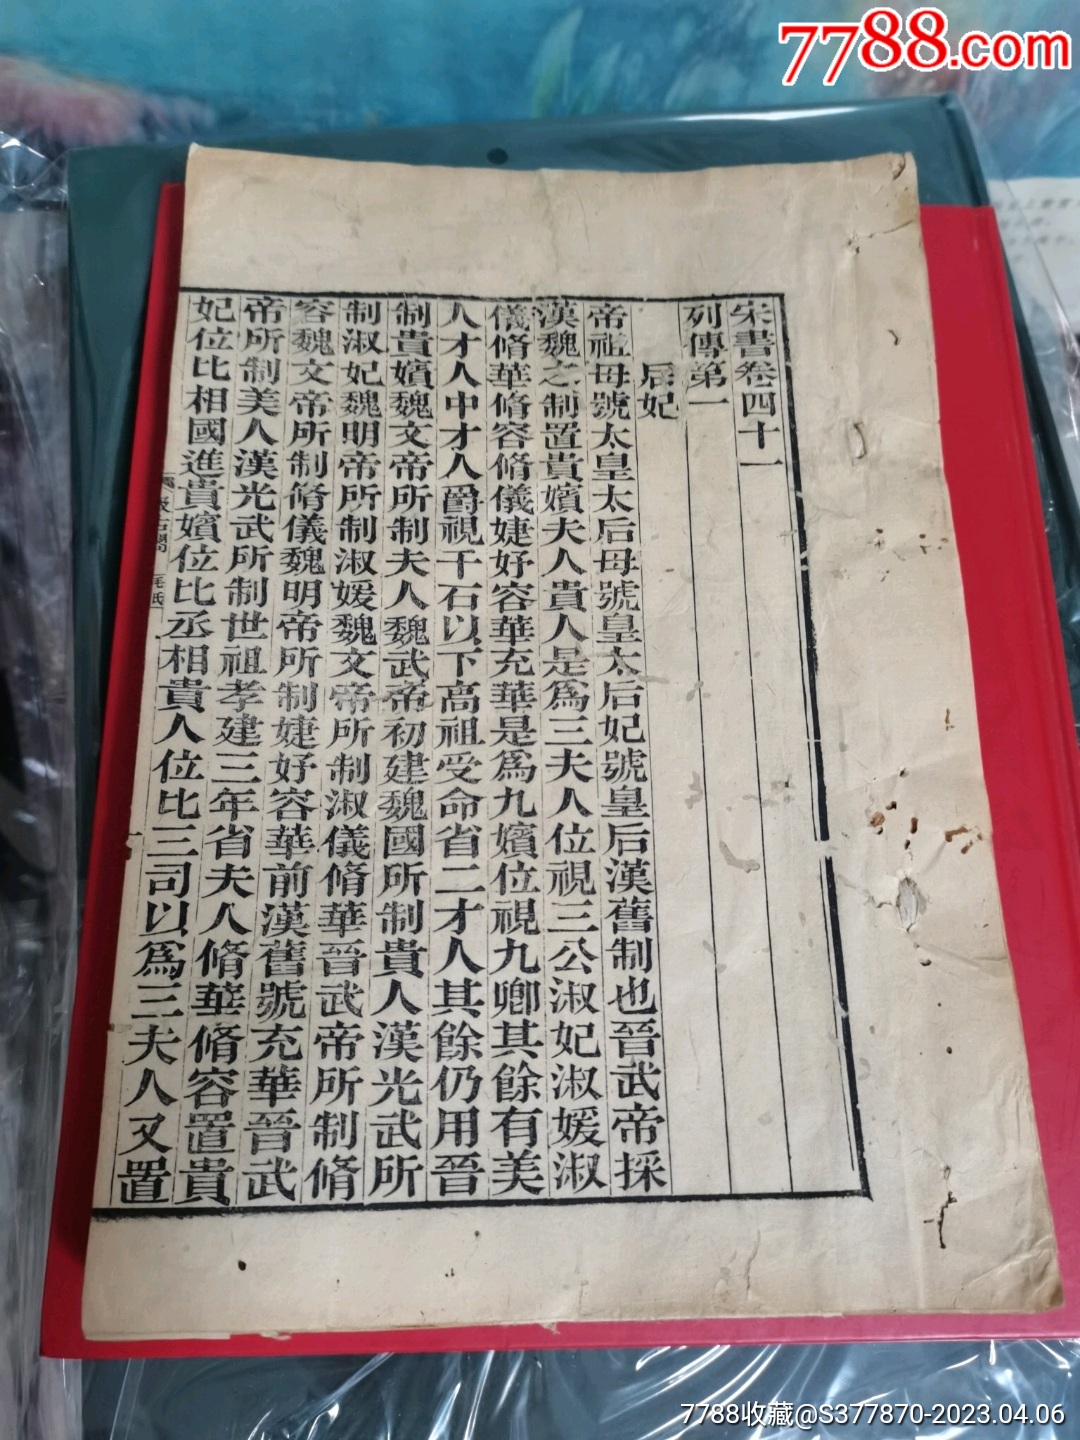 7788.com
宋書卷四十一
列傳第一
后妃
帝祖母號太皇太后母號皇太后妃號皇后漢舊制也晉武帝採
漢魏之制置貴嬪夫人貴人是爲三夫人位視三公淑妃淑媛淑
儀脩華脩容脩儀婕妤容華充華是爲九嬪位視九卿其餘有美
人才人中才人爵視千石以下高祖受命省二才人其餘仍用晉
制貴嬪魏文帝所制夫人魏武帝初建魏國所制貴人漢光武所
制淑妃魏明帝所制淑媛魏文帝所制淑儀脩華晉武帝所制脩
容魏文帝所制脩儀魏明帝所制婕妤容華前漢舊號充華晉武
帝所制美人漢光武所制世祖孝建三年省夫人脩華脩容置貴
妃位比相國進貴嬪位比丞相貴人位比三司以爲三夫人又置
汲古閣
毛氏
7788收藏@S377870-2023.04.06